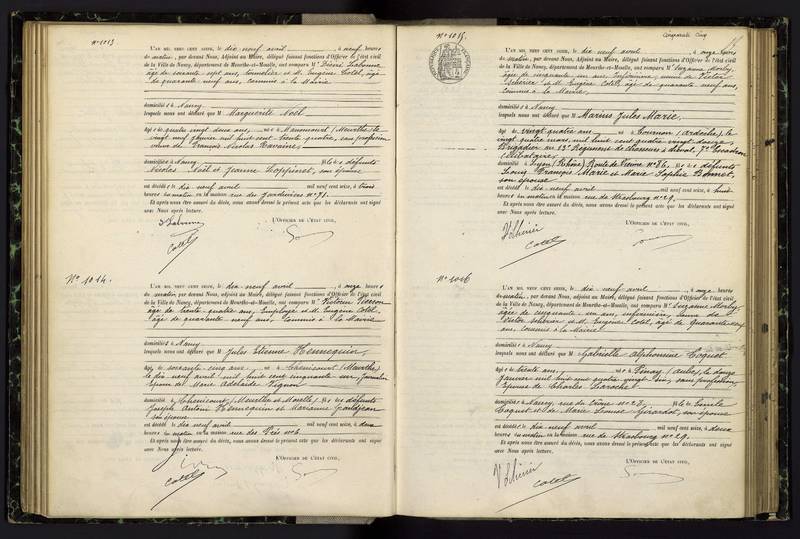 N° 1013
L'AN MIL NEUF CENT SEIZE, le dix neuf avril, à neuf heures
du matin, par devant Nous, Adjoint au Maire, délégué faisant fonctions d'Officier de l'état civil
de la Ville de Nancy, département de Meurthe-et-Moselle, ont comparu Mrs Désiré
âgé de soixante sept ans, et M. Eugène Cotel, âgé
de quarante neuf ans, Commis à la Mairie
domiciliés à Nancy
lesquels nous ont déclaré que M Marguerite Noël
âgée de quatre vingt deux ans, née à (Meurthe) le
vingt neuf janvier mil huit cent trente quatre, sans profession
veuve de François Nicolas
domiciliée à Nancy, fille de défunts
Nicolas Noël et Jeanne, son épouse
est décédée le dix neuf avril mil neuf cent seize, à trois
heures du matin en la maison rue des Jardiniers n° 71.
Et après nous être assuré du décès, nous avons dressé le présent acte que les déclarants ont signé
avec Nous après lecture.
L'OFFICIER DE L'ÉTAT CIVIL,
Cotel
N° 1014.
L'AN MIL NEUF CENT SEIZE, le dix-neuf avril, à onze heures
du matin, par devant Nous, adjoint au Maire, délégué faisant fonctions d'Officier de l'état civil
de la Ville de Nancy, département de Meurthe-et-Moselle, ont comparu Mrs Victorin
âgé de trente-quatre ans, Employé et M. Eugène Cotel,
âgé de quarante neuf ans, Commis à la Mairie
domiciliés à Nancy
lesquels nous ont déclaré que M Jules Etienne Hennequin,
âgé de soixante-cinq ans, né à Chenicourt (Meurthe)
le dix neuf avril mil huit cent cinquante un, journalier
époux de Marie Adelaïde Vignon
domicilié à Chenicourt (Meurthe et Moselle) fils de défunts
Joseph Antoine Hennequin et Marianne
son épouse
est décédé le dix neuf avril mil neuf cent seize, à deux
heures du matin en la maison rue des Prés n° 6
Et après nous être assuré du décès, nous avons dressé le présent acte que les déclarants ont signé
avec Nous après lecture.
L'OFFICIER DE L'ÉTAT CIVIL,
Cotel
Cinquante Cinq
N° 1015.
L'AN MIL NEUF CENT SEIZE, le dix-neuf avril, à onze heures
du matin, par devant Nous, Adjoint au Maire, délégué faisant fonctions d'Officier de l'état civil
de la Ville de Nancy, département de Meurthe-et-Moselle, ont comparu Mrs Suzanne
âgée de cinquante un ans, Infirmière, veuve de Victor
et M. Eugène Cotel, âgé de quarante neuf ans,
Commis à la Mairie
domiciliés à Nancy
lesquels nous ont déclaré que M Marius Jules Marie.
âgé de vingt quatre ans né à Tournon (Ardèche), le
vingt quatre mars, mil huit cent quatre vingt douze,
Brigadier au Régiment de Chasseurs à cheval, Escadron
Célibataire
domicilié à Lyon (Rhône) Route de Vienne n° 86, fils de défunts
Louis François Marie et Marie Sophie Bonnet,
son épouse
est décédé le dix neuf avril mil neuf cent seize, à huit
heures du matin en la maison rue de Strasbourg n° 29.
Et après nous être assuré du décès, nous avons dressé le présent acte que les déclarants ont signé
avec Nous après lecture.
L'OFFICIER DE L'ÉTAT CIVIL,
Cotel
N° 1016
L'AN MIL NEUF CENT SEIZE, le dix neuf avril, à onze heures
du matin, par devant Nous, adjoint au Maire, délégué faisant fonctions d'Officier de l'état civil
de la Ville de Nancy, département de Meurthe-et-Moselle, ont comparu Mrs Suzanne
âgée de cinquante un ans, infirmière, veuve de
Victor et M. Eugène Cotel, âgé de quarante neuf
ans, Commis à la Mairie
domiciliés à Nancy
lesquels nous ont déclaré que M Gabrielle Alphonsine Coquet
âgée de trente ans, née à Piney (Aube), le douze
janvier mil huit cent quatre vingt six, sans profession
épouse de Charles Laroche
domiciliée à Nancy, rue n° 23, fille de Emile
Coquet et de Marie Léonie Girardot, son épouse
est décédée le dix neuf avril mil neuf cent seize, à deux
heures du matin en la maison rue de Strasbourg n° 29.
Et après nous être assuré du décès, nous avons dressé le présent acte que les déclarants ont signé
avec Nous après lecture.
L'OFFICIER DE L'ÉTAT CIVIL,
Cotel